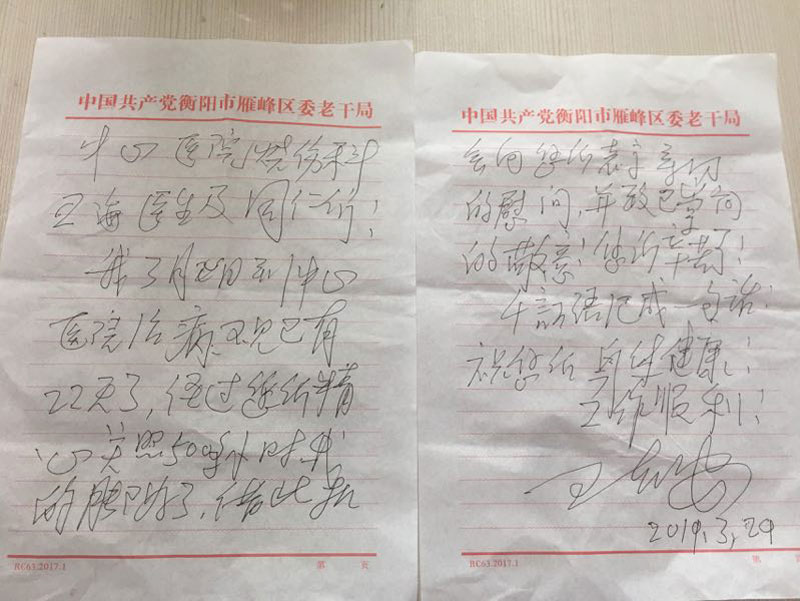 中国共产党衡阳市雁峰区委老干局
中心医院烧伤科
王海医生及同仁们!
我3月 日到中心
医院治病,现已有
22天了,经过您们精
心关照 时我
的腿已好了,借此机
RC63.2017.1 第 页
中国共产党衡阳市雁峰区委老干局
会向您们表示亲切
的慰问,并致已崇高
的敬意!您们辛苦了!
千言语汇成一句话:
祝您们身体健康!
工作顺利!
王
2019.3,29
RC63.2017.1 第